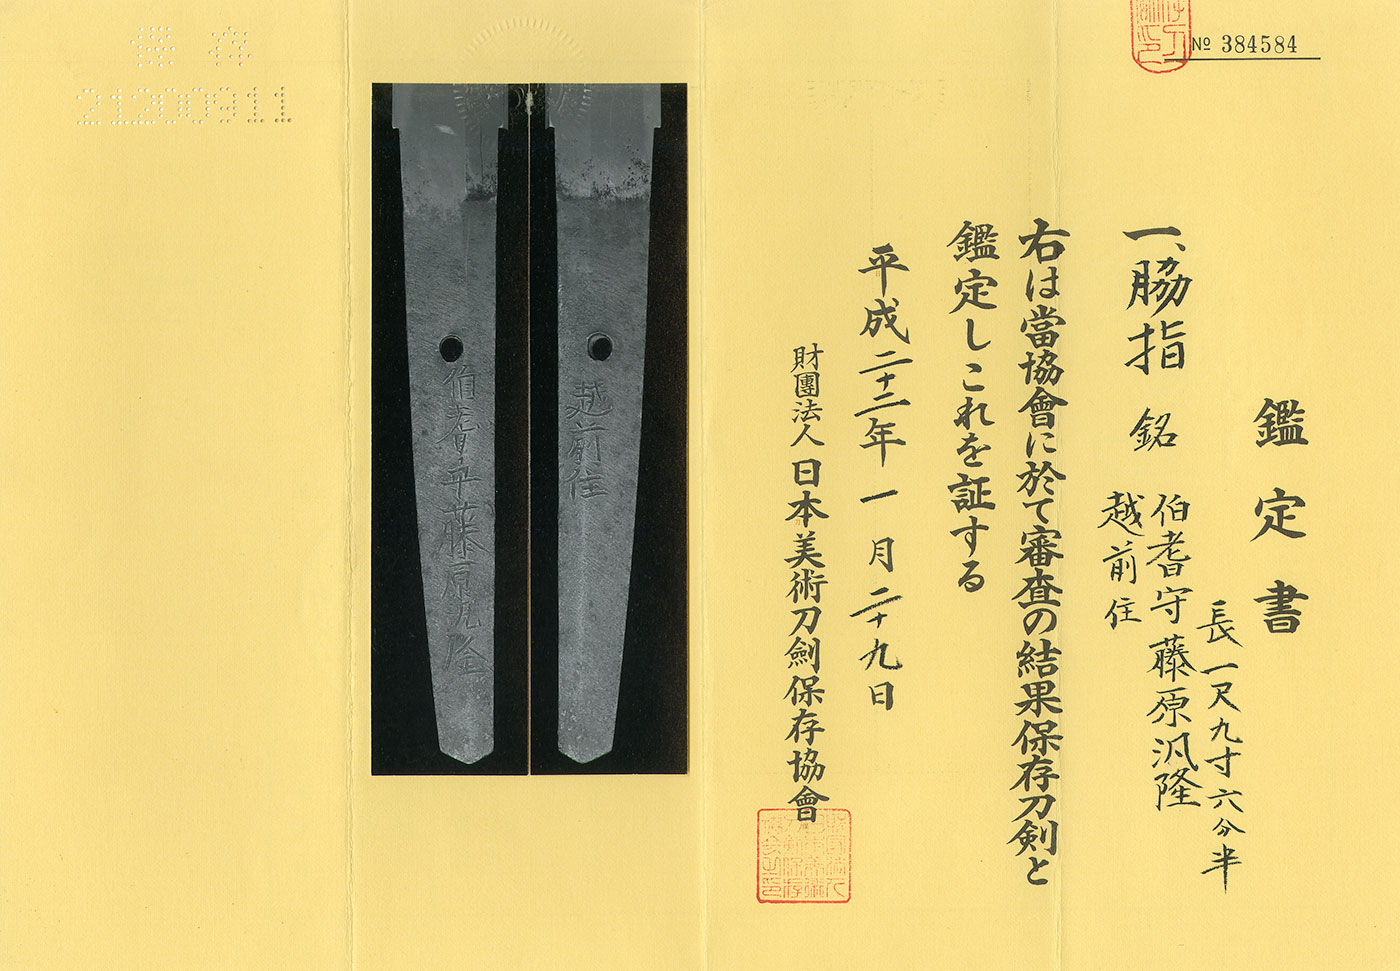 № 384584
鑑定書
一、脇指 銘 伯耆守藤原汎隆
越前住
長一尺九寸六分半
右は當協會に於て審査の結果保存刀剣と
鑑定しこれを証する
平成二十二年一月二十九日
財團法人 日本美術刀劍保存協會
越前住
伯耆守藤原汎隆
保存
21200911